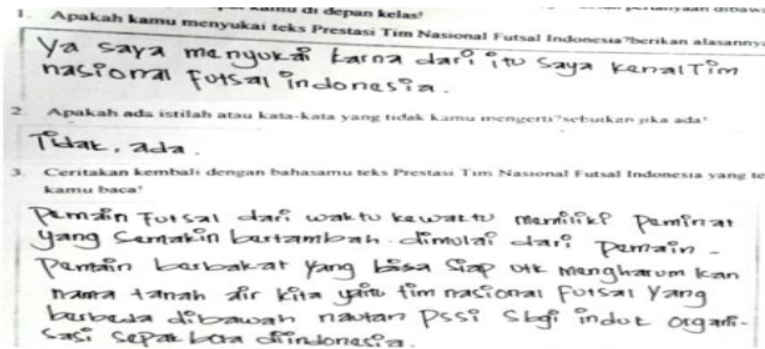 kamu di depan kelas!
1. Apakah kamu menyukai teks Prestasi Tim Nasional Futsal Indonesia?berikan alasannya
Ya saya menyukai karna dari itu saya kenal Tim
nasional Futsal indonesia.
2. Apakah ada istilah atau kata-kata yang tidak kamu mengerti?sebutkan jika ada!
Tidak, ada.
3. Ceritakan kembali dengan bahasamu teks Prestasi Tim Nasional Futsal Indonesia yang te
kamu baca!
Pemain Futsal dari waktu kewaktu memiliki peminat
yang semakin bertambah. dimulai dari pemain -
Pemain berbakat yang bisa siap utk mengharum kan
nama tanah air kita yaitu tim nasional Futsal yang
berbeda dibawah nautan PSSI sbgi induk organi-
sasi sepak bora diindonesia.